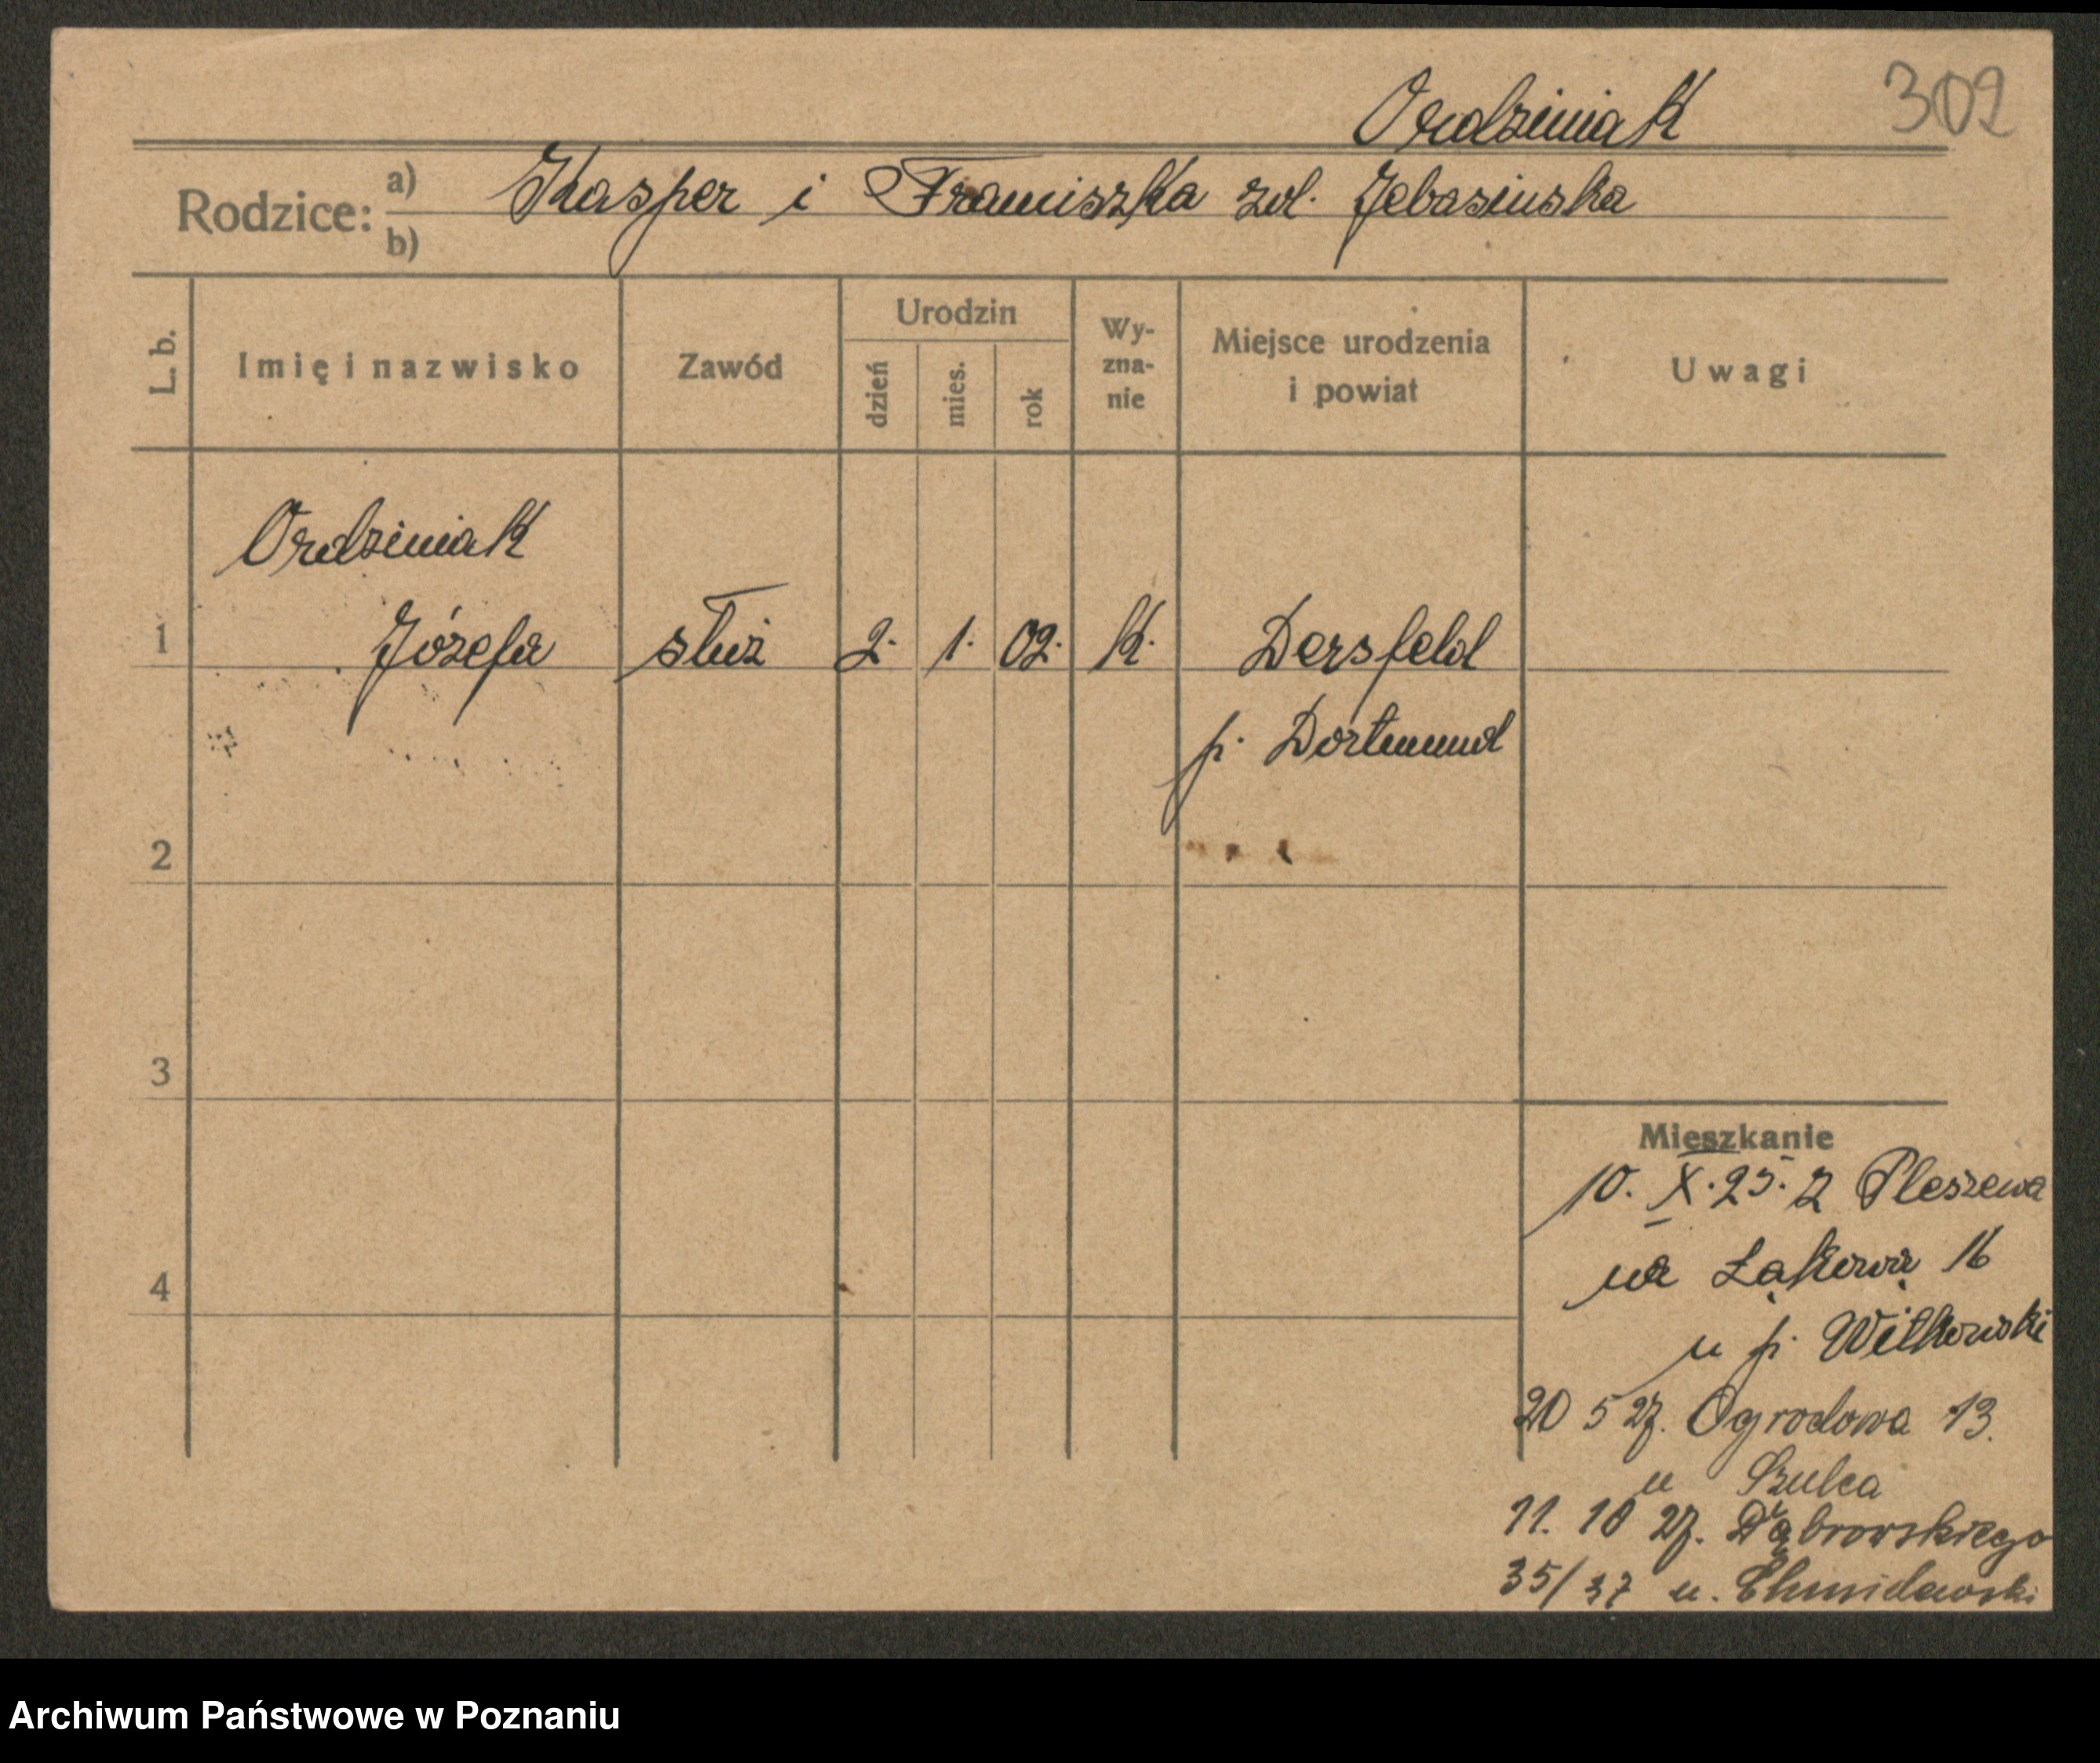 302
Ordziniak
Rodzice: a) Kasper i Franciszka zd. Jebasinska
b)
L. b.
Imię i nazwisko
Zawód
Urodzin
dzień
mies.
rok
Wy-
zna-
nie
Miejsce urodzenia
i powiat
Uwagi
Ordziniak
1 Józefa służ 2. 1. 02. K. Dersfeld
p. Dortmund
2
3
4
Mieszkanie
10. X. 25. z Pleszewa
na Łąkową 16
u p. Witkowski
20 5 27. Ogrodowa 13.
u Szulca
11. 10 27. Dąbrowskiego
35/37 u.
Archiwum Państwowe w Poznaniu